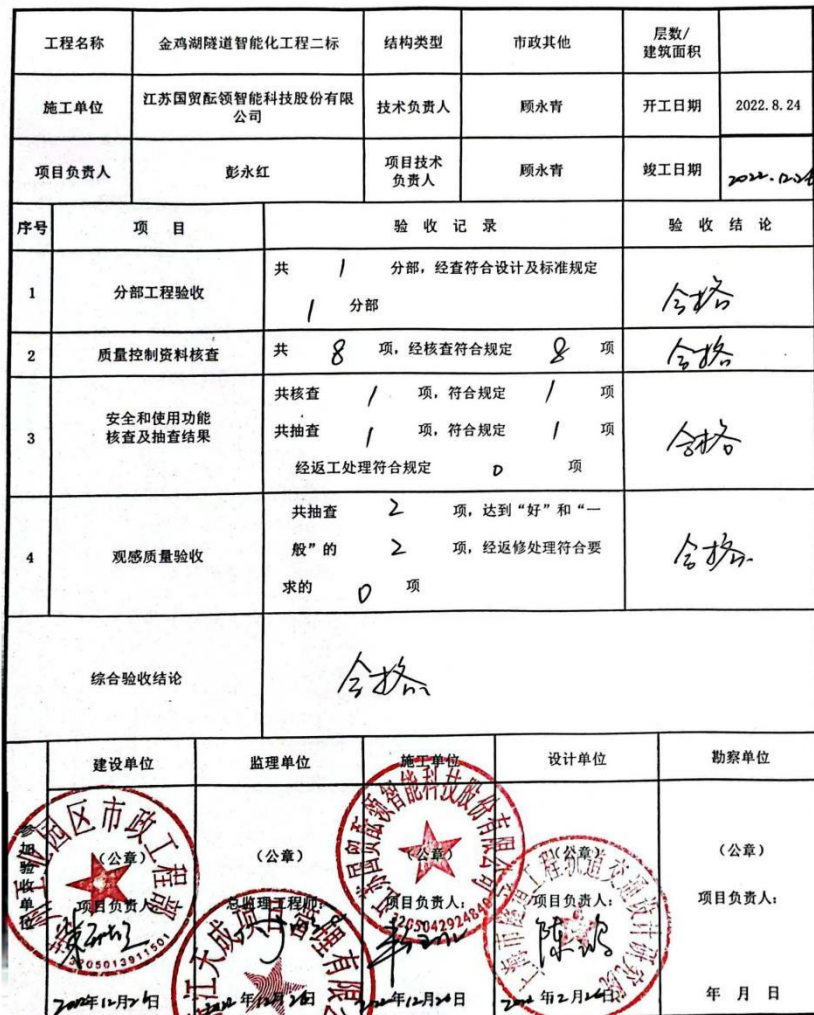 工程名称 金鸡湖隧道智能化工程二标 结构类型 市政其他 层数/
建筑面积
施工单位 江苏国贸酝领智能科技股份有限
公司 技术负责人 顾永青 开工日期 2022.8.24
项目负责人 彭永红 项目技术
负责人 顾永青 竣工日期 2022.12.26
序号 项 目 验 收 记 录 验 收 结 论
1 分部工程验收 共 1 分部，经查符合设计及标准规定
1 分部 合格
2 质量控制资料核查 共 8 项，经核查符合规定 8 项 合格
3 安全和使用功能
核查及抽查结果 共核查 1 项，符合规定 1 项
共抽查 1 项，符合规定 1 项
经返工处理符合规定 0 项 合格
4 观感质量验收 共抽查 2 项，达到“好”和“一
般”的 2 项，经返修处理符合要
求的 0 项 合格
综合验收结论 合格
参加验收单位
建设单位 监理单位 施工单位 设计单位 勘察单位
（公章） （公章） （公章） （公章） （公章）
项目负责人 总监理工程师： 项目负责人： 项目负责人： 项目负责人：
2022年12月26日 2022年12月26日 2022年12月26日 2022年12月26日 年 月 日
工业园区市政工程部
3205013911501
江天成项目管理有限公
江苏国贸酝领智能科技股份有限公司
上海市隧道工程轨道交通设计研究院